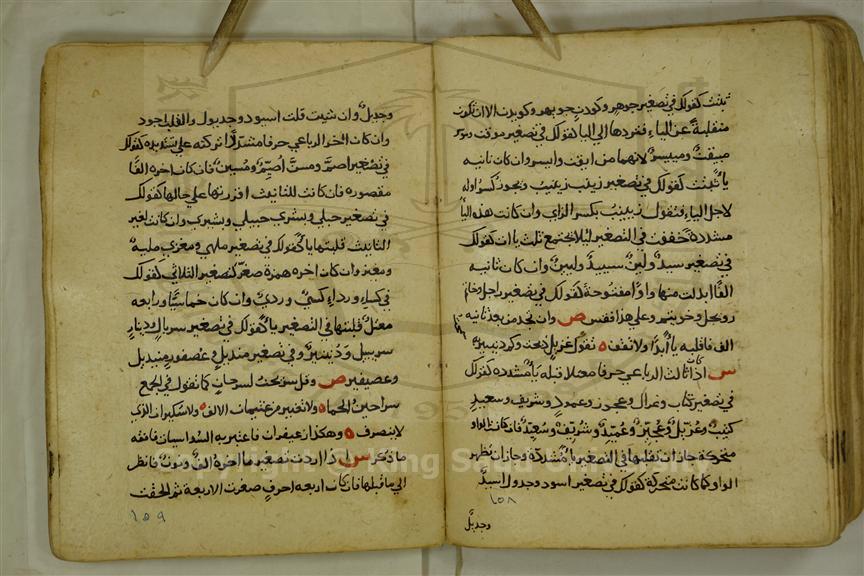 تثبت كقولك في تصغير جوهر وكودن جويهر وكويدن الا ان تكون
منقلبة عن الياء فتردها الي اليا كقولك في تصغير موقن وموسر
مييقن ومييسر لانهما من ايقن وايسر وان كان ثانيه
ياً ثبتت كقولك في تصغير زينب زيينب ويجوز كسر اوله
لاجل الياء فتقول زيينب بكسر الزاي وان كانت هذه اليا
مشددة خففت في التصغير ليلا يجتمع ثلث ياات كقولك
في تصغير سيدٍ ولينٍ سييد وليين وان كان ثانيه
الفا ابدلت منها واوًا مفتوحة كقولك في تصغير راجل وخاتم
رويجل وخويتم وعلي هذا فقس ص وان تجد من بعد ثانيه
الف فاقلبه ياً ابدًا ولا تقف ه تقول غزيل ذبحت وكم دنينير
س اذا كان ثالث الرباعي حرفا معتلا قبله ياً مشددة كقولك
في تصغير كتاب وغزال وعجوز وعمود وشريف وسعيد
كتيب وغزيل وعجيز وعميد وشريف وسعيد فان كانت الواو
متحركة جاز ان تقلبها في التصغير ياً مشددة وجاز ان تظهر
الواو كما كانت متحركة كقولك في تصغير اسود وجدول اسيد
١٥٨
وجديل
وجديل وان شيت قلت اسيود وجديول والقلب اجود
وان كان اخر الرباعي حرفا مشددًا تركته علي تشديده كقولك
في تصغير اصم ومسن اصيم ومسين فان كان اخره الفا
مقصوره فان كانت للتانيث اقررتها علي حالها كقولك
في تصغير حبلي وبشري حبيلي وبشيري وان كانت لغير
التانيث قلبتها ياً كقولك في تصغير ملهي ومغزي مليه
ومغيز وان كان اخره همزة صغر كتصغير الثلاثي كقولك
في كساء ورداء كسي وردي وان كان خماسيًا ورابعه
معتل قلبتها في التصغير ياً كقولك في تصغير سربال ودينار
سريبيل ودنينير وفي تصغير منديل وعصفور منيديل
وعصيفير ص وقل سريحين لسرحان كما تقول في الجمع
سراحين الحما ه ولا تغير من عثيمان الالف ه ولا سكيران الذي
لا ينصرف ه وهكذا زعيفران فاعتبر به السداسيات فافقه
ما ذكر س اذا اردت تصغير ما اخره الف ونون فانظر
الي ما قبلها فان كان اربعه احرف صغرت الاربعة ثم الحقت
١٥٩